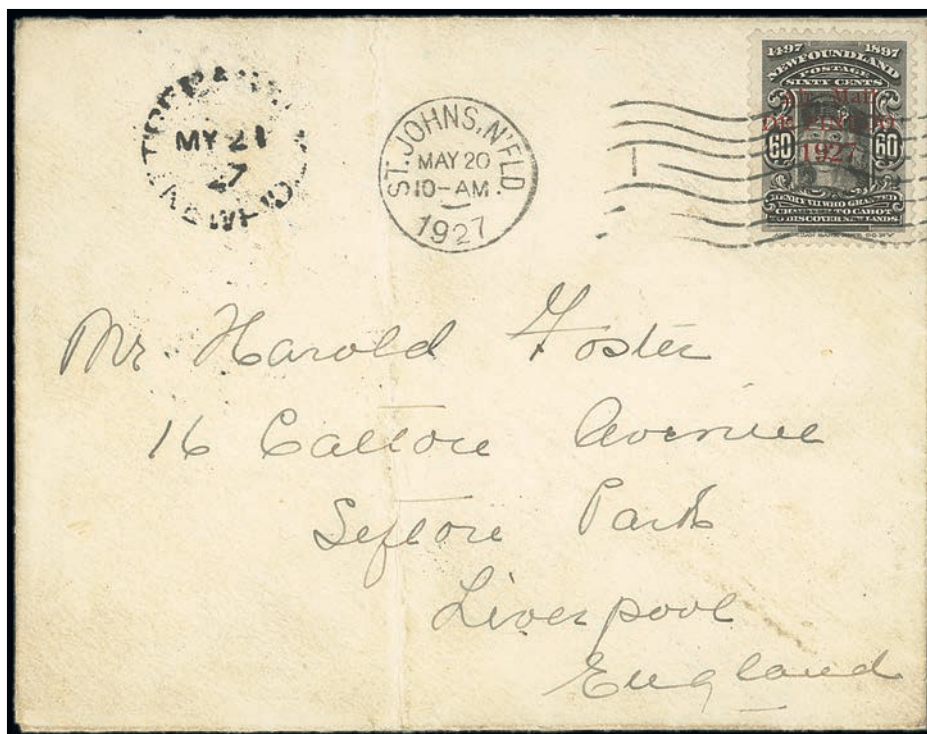 MY 21
27
ST. JOHNS, N'FLD.
MAY 20
10-AM
1927
1497 1897
NEWFOUNDLAND
POSTAGE
SIXTY CENTS
Air Mail
DE PINEDO
1927
60 60
HENRY VII WHO GRANTED
CHARTER TO CABOT
TO DISCOVER NEW LANDS
Mr. Harold Foster
16 Calton Avenue
Sefton Park
Liverpool
England